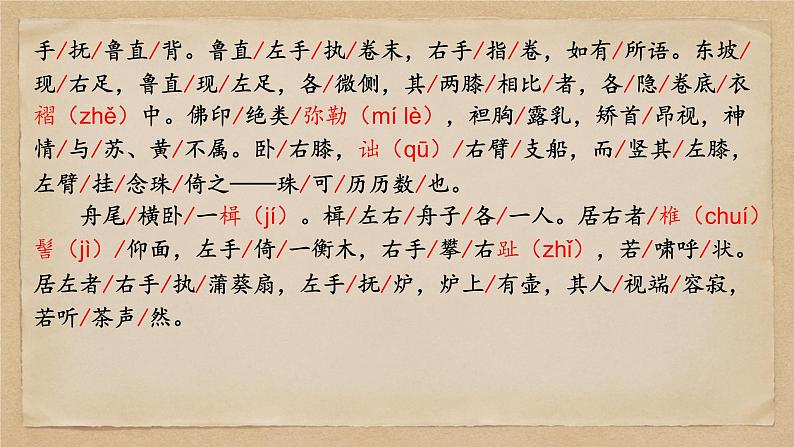 手/抚/鲁直/背。鲁直/左手/执/卷末，右手/指/卷，如有/所语。东坡/
现/右足，鲁直/现/左足，各/微侧，其/两膝/相比/者，各/隐/卷底/衣
褶（zhě）中。佛印/绝类/弥勒（mí lè），袒胸/露乳，矫首/昂视，神
情/与/苏、黄/不属。卧/右膝，诎（qū）/右臂/支船，而/竖其/左膝，
左臂/挂/念珠/倚之——珠/可/历历数/也。
舟尾/横卧/一楫（jí）。楫/左右/舟子/各/一人。居右者/椎（chuí）
髻（jì）/仰面，左手/倚/一衡木，右手/攀/右趾（zhǐ），若/啸呼/状。
居左者/右手/执/蒲葵扇，左手/抚/炉，炉上/有壶，其人/视端/容寂，
若听/茶声/然。